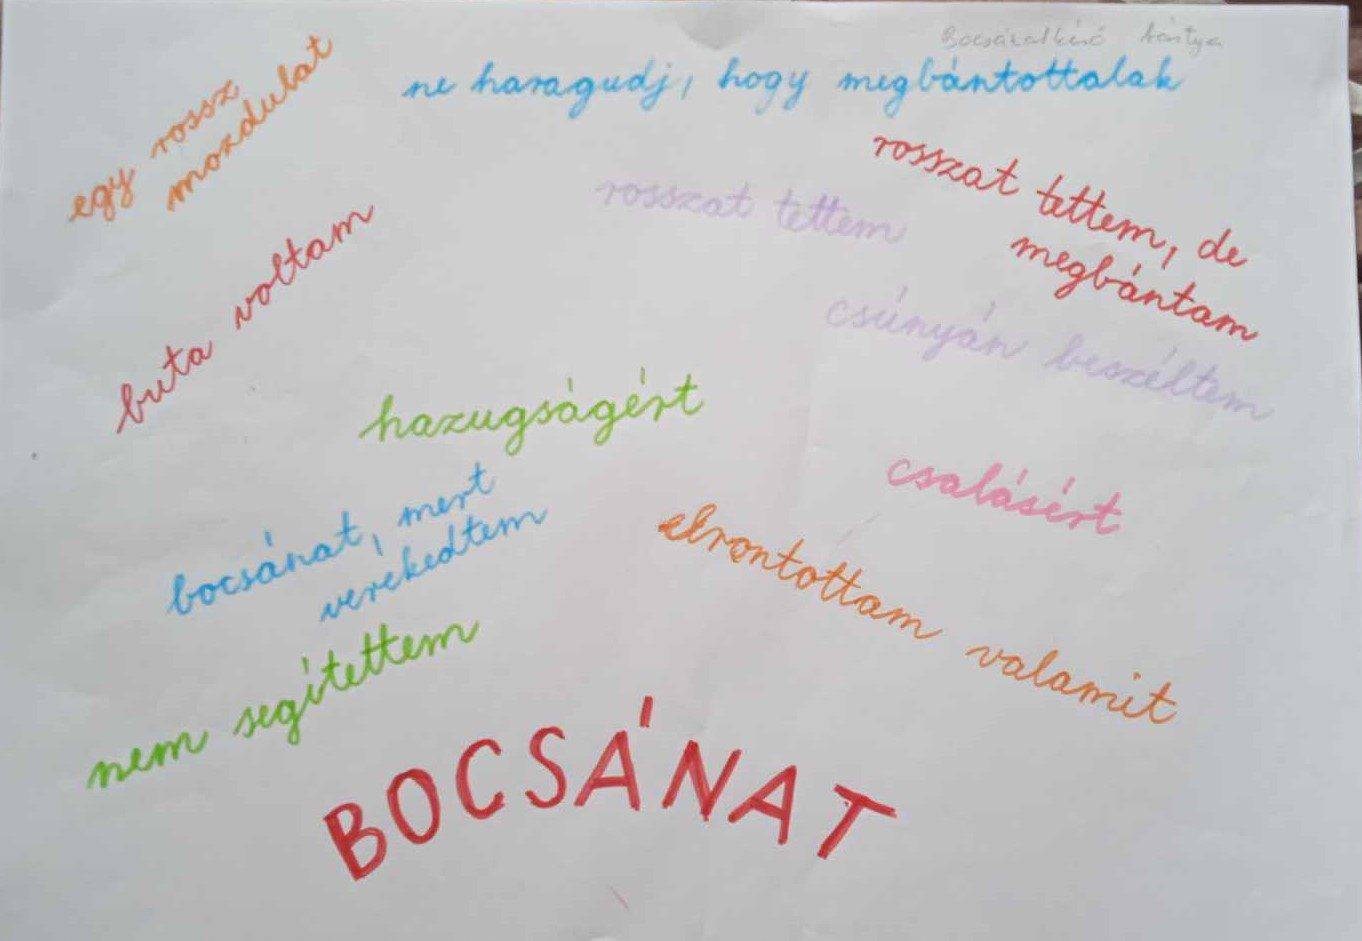 Bocsánatkérő kártya
ne haragudj, hogy megbántottalak
egy rossz
mozdulat
rosszat tettem, de
megbántam
rosszat tettem
buta voltam
csúnyán beszéltem
hazugságért
csalásért
bocsánat, mert
verekedtem
elrontottam valamit
nem segítettem
BOCSÁNAT